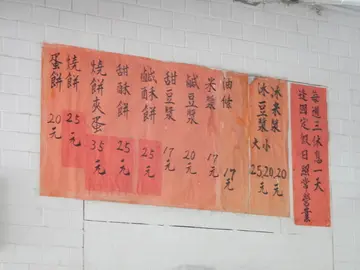 每週三休息一天
逢國定假日照常營業
冰米漿
冰豆漿
大 小
25元 20元 20元
油條
17元
米漿
17元
鹹豆漿
20元
甜豆漿
17元
鹹酥餅
25元
甜酥餅
25元
燒餅夾蛋
35元
燒餅
25元
蛋餅
20元